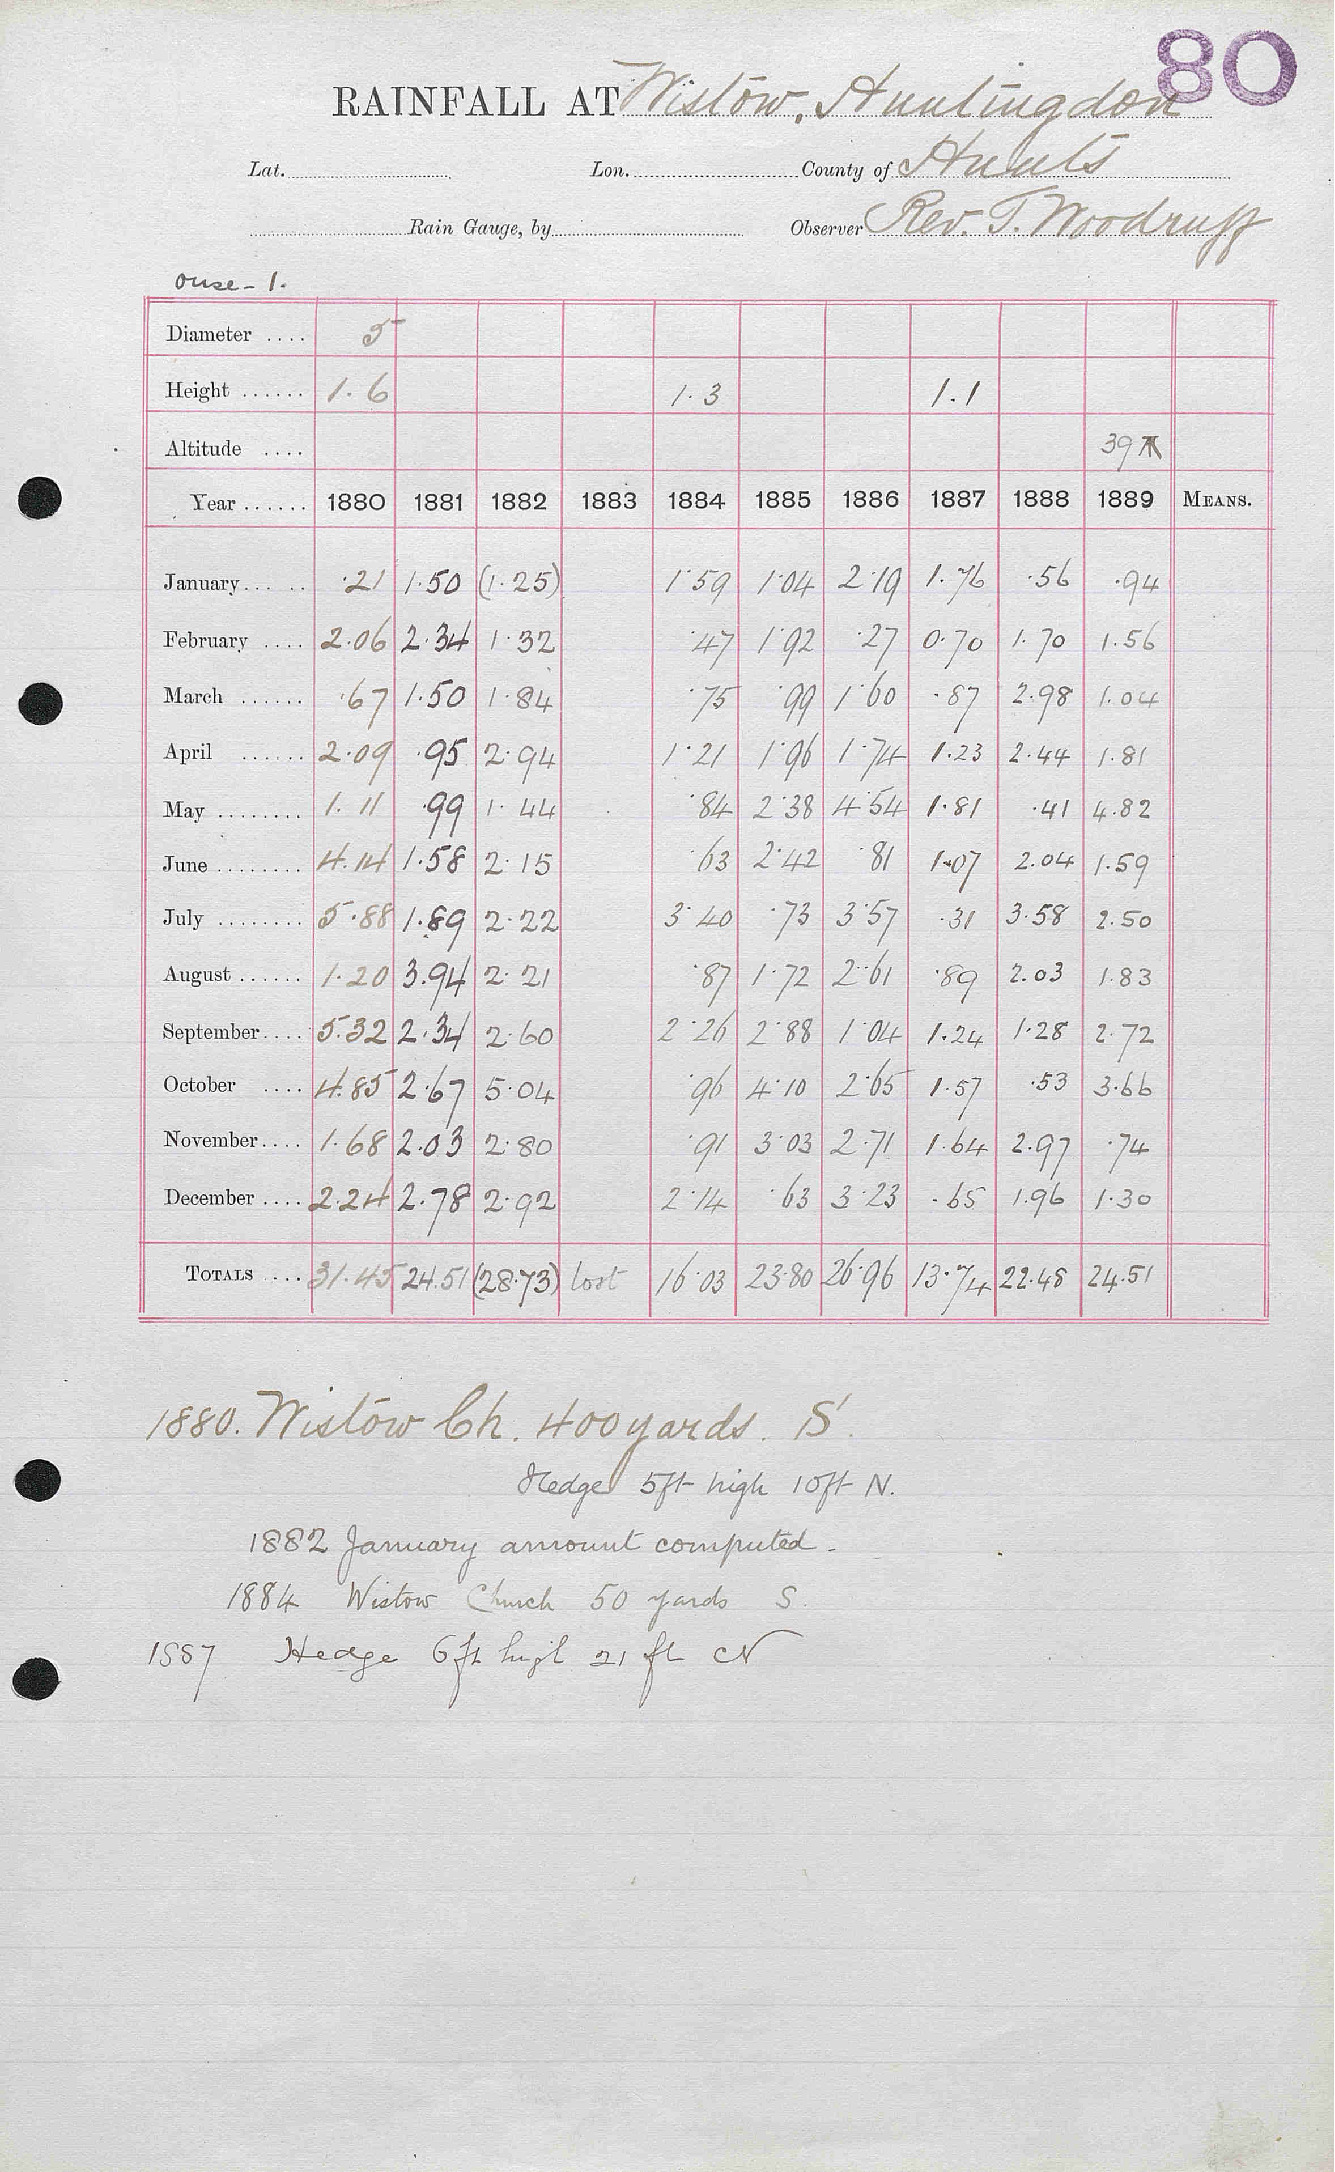 80
RAINFALL AT Wistow, Huntingdon
Lat. Lon. County of Hunts
Rain Gauge, by Observer Rev. T. Woodruff
Ouse - 1.
Diameter .... 5
Height ...... 1.6 1.3 1.1
Altitude .... 39
Year ...... 1880 1881 1882 1883 1884 1885 1886 1887 1888 1889 MEANS.
January...... .21 1.50 (1.25) 1.59 1.04 2.19 1.76 .56 .94
February .... 2.06 2.34 1.32 .47 1.92 .27 0.70 1.70 1.56
March ...... .67 1.50 1.84 .75 .99 1.60 .87 2.98 1.04
April ...... 2.09 .95 2.94 1.21 1.96 1.74 1.23 2.44 1.81
May ........ 1.11 .99 1.44 .84 2.38 4.54 1.81 .41 4.82
June ........ 4.14 1.58 2.15 .63 2.42 .81 1.07 2.04 1.59
July ........ 5.88 1.89 2.22 3.40 .73 3.57 .31 3.58 2.50
August ...... 1.20 3.94 2.21 .87 1.72 2.61 .89 2.03 1.83
September.... 5.32 2.34 2.60 2.26 2.88 1.04 1.24 1.28 2.72
October .... 4.85 2.67 5.04 .96 4.10 2.65 1.57 .53 3.66
November.... 1.68 2.03 2.80 .91 3.03 2.71 1.64 2.97 .74
December .... 2.24 2.78 2.92 2.14 .63 3.23 .65 1.96 1.30
TOTALS .... 31.45 24.51 (28.73) lost 16.03 23.80 26.96 13.74 22.48 24.51
1880. Wistow Ch. 400 yards. S.
Hedge 5ft high 10ft N.
1882 January amount computed.
1884 Wistow Church 50 yards S.
1887 Hedge 6ft high 21 ft N